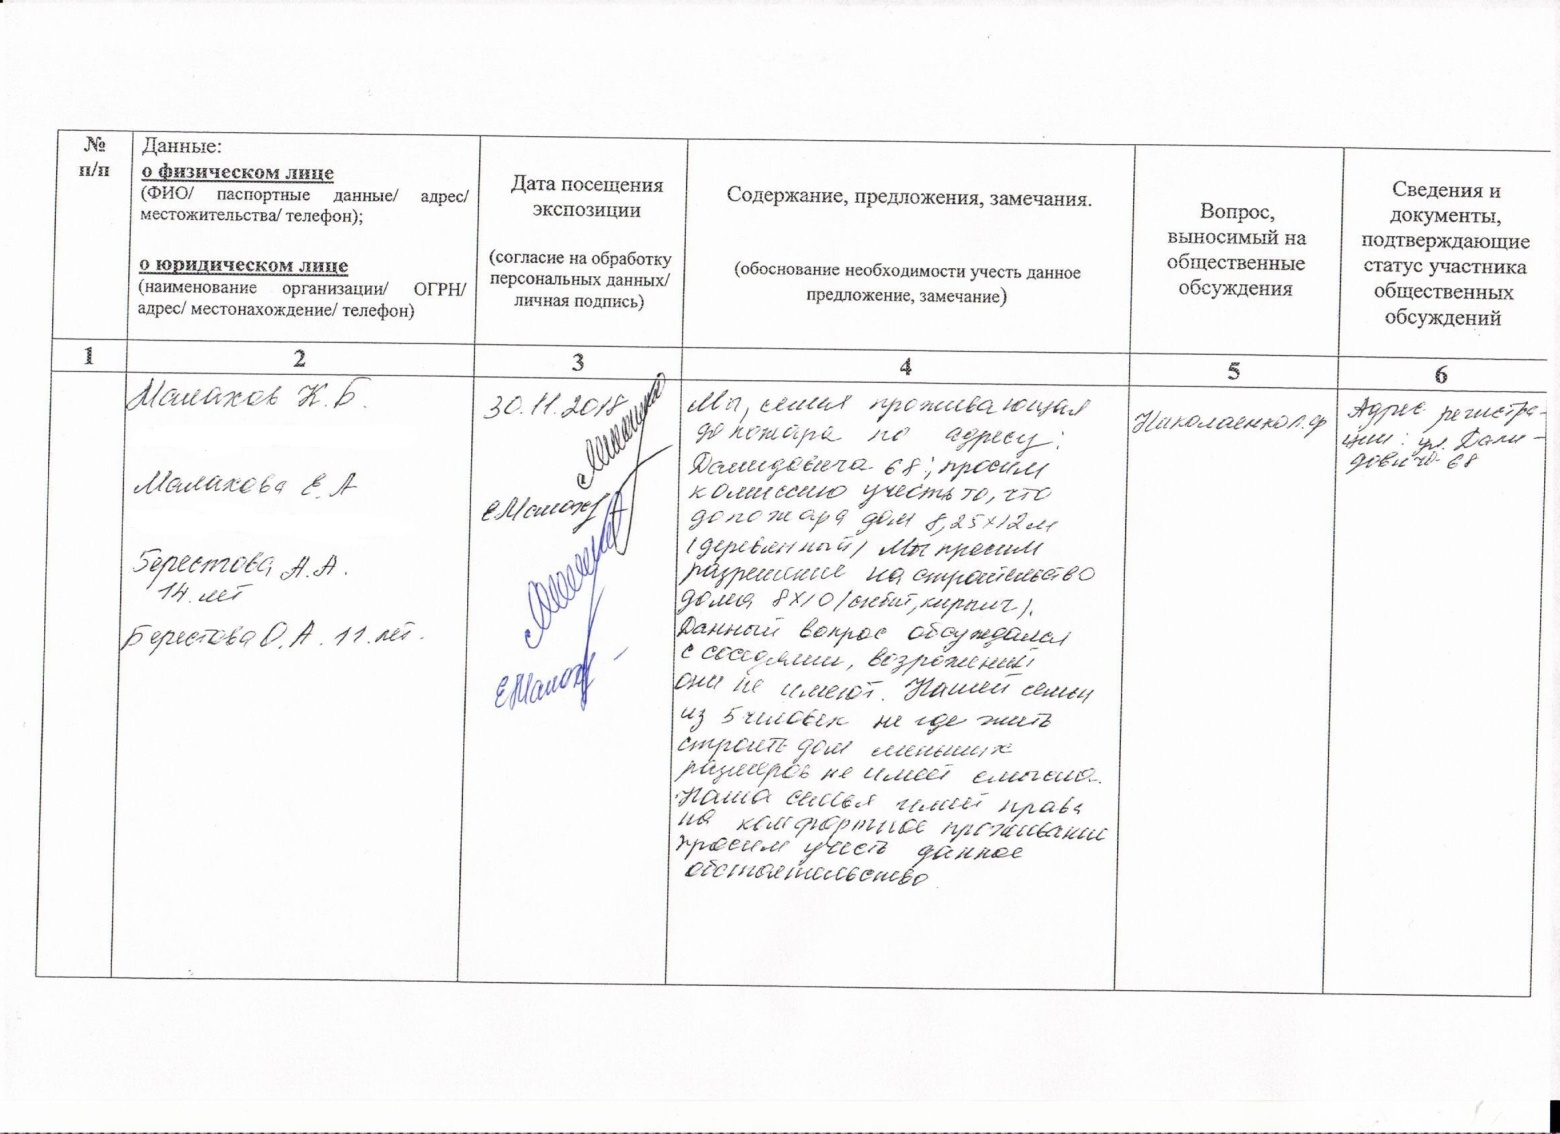 №
п/п
Данные:
о физическом лице
(ФИО/ паспортные данные/ адрес/
местожительства/ телефон);
о юридическом лице
(наименование организации/ ОГРН/
адрес/ местонахождение/ телефон)
Дата посещения
экспозиции
(согласие на обработку
персональных данных/
личная подпись)
Содержание, предложения, замечания.
(обоснование необходимости учесть данное
предложение, замечание)
Вопрос,
выносимый на
общественные
обсуждения
Сведения и
документы,
подтверждающие
статус участника
общественных
обсуждений
1 2 3 4 5 6
Малахов К.Б.
Малахова Е А
Берестова А.А.
14 лет
Берестова О.А. 11 лет.
30.11.2018
ЕМалах
ЕМалах
Мы, семья проживающая
до пожара по адресу:
Давидовича 68; просим
комиссию учесть то, что
до пожара дом 8,25х12м
(деревянный) Мы просим
разрешение на строительство
дома 8х10 (сибит, кирпич).
Данный вопрос обсуждался
с соседями, возражений
они не имеют. Нашей семьи
из 5 человек не где жить
строить дом меньших
размеров не имеет смысла.
Наша семья имеет права
на комфортное проживание
просим учесть данное
обстоятельство
Николаенко Л.Ф
Адрес регистра-
ции: ул. Дави-
довича 68